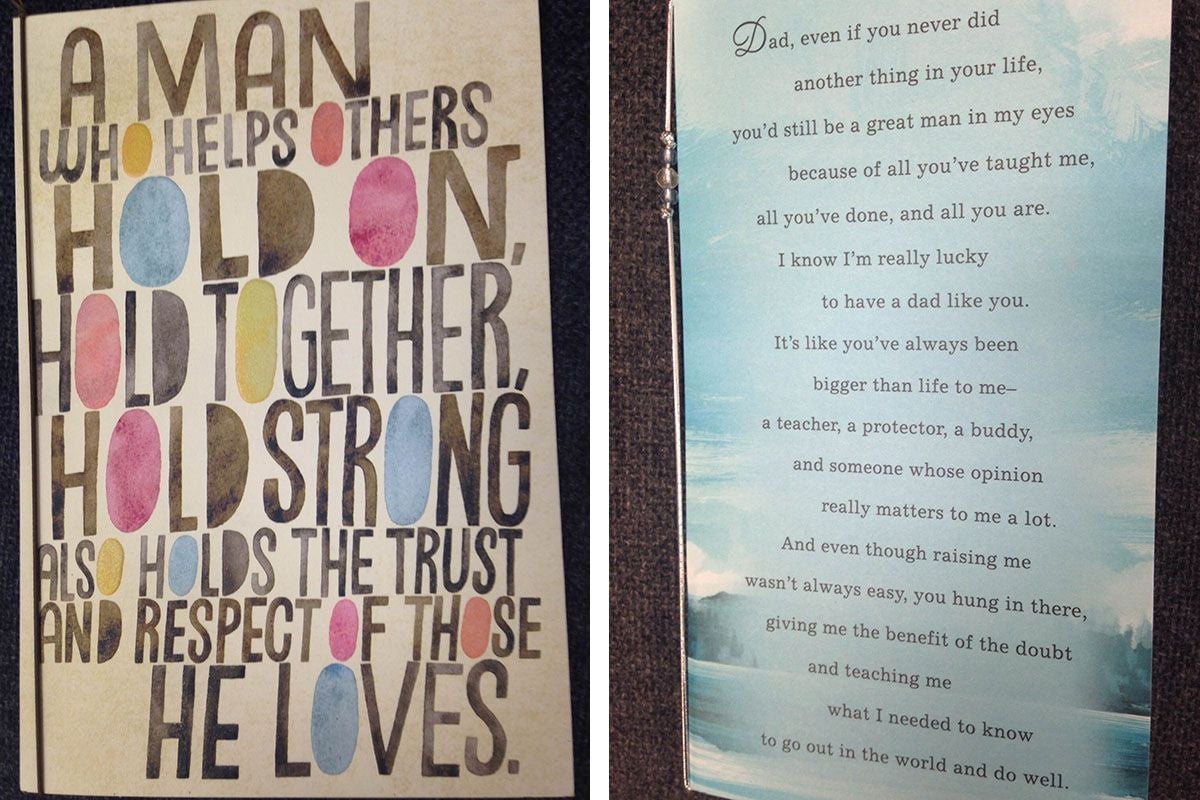 A MAN
WHO HELPS OTHERS
HOLD ON,
HOLD TOGETHER,
HOLD STRONG
ALSO HOLDS THE TRUST
AND RESPECT OF THOSE
HE LOVES.
Dad, even if you never did
another thing in your life,
you'd still be a great man in my eyes
because of all you've taught me,
all you've done, and all you are.
I know I'm really lucky
to have a dad like you.
It's like you've always been
bigger than life to me–
a teacher, a protector, a buddy,
and someone whose opinion
really matters to me a lot.
And even though raising me
wasn't always easy, you hung in there,
giving me the benefit of the doubt
and teaching me
what I needed to know
to go out in the world and do well.